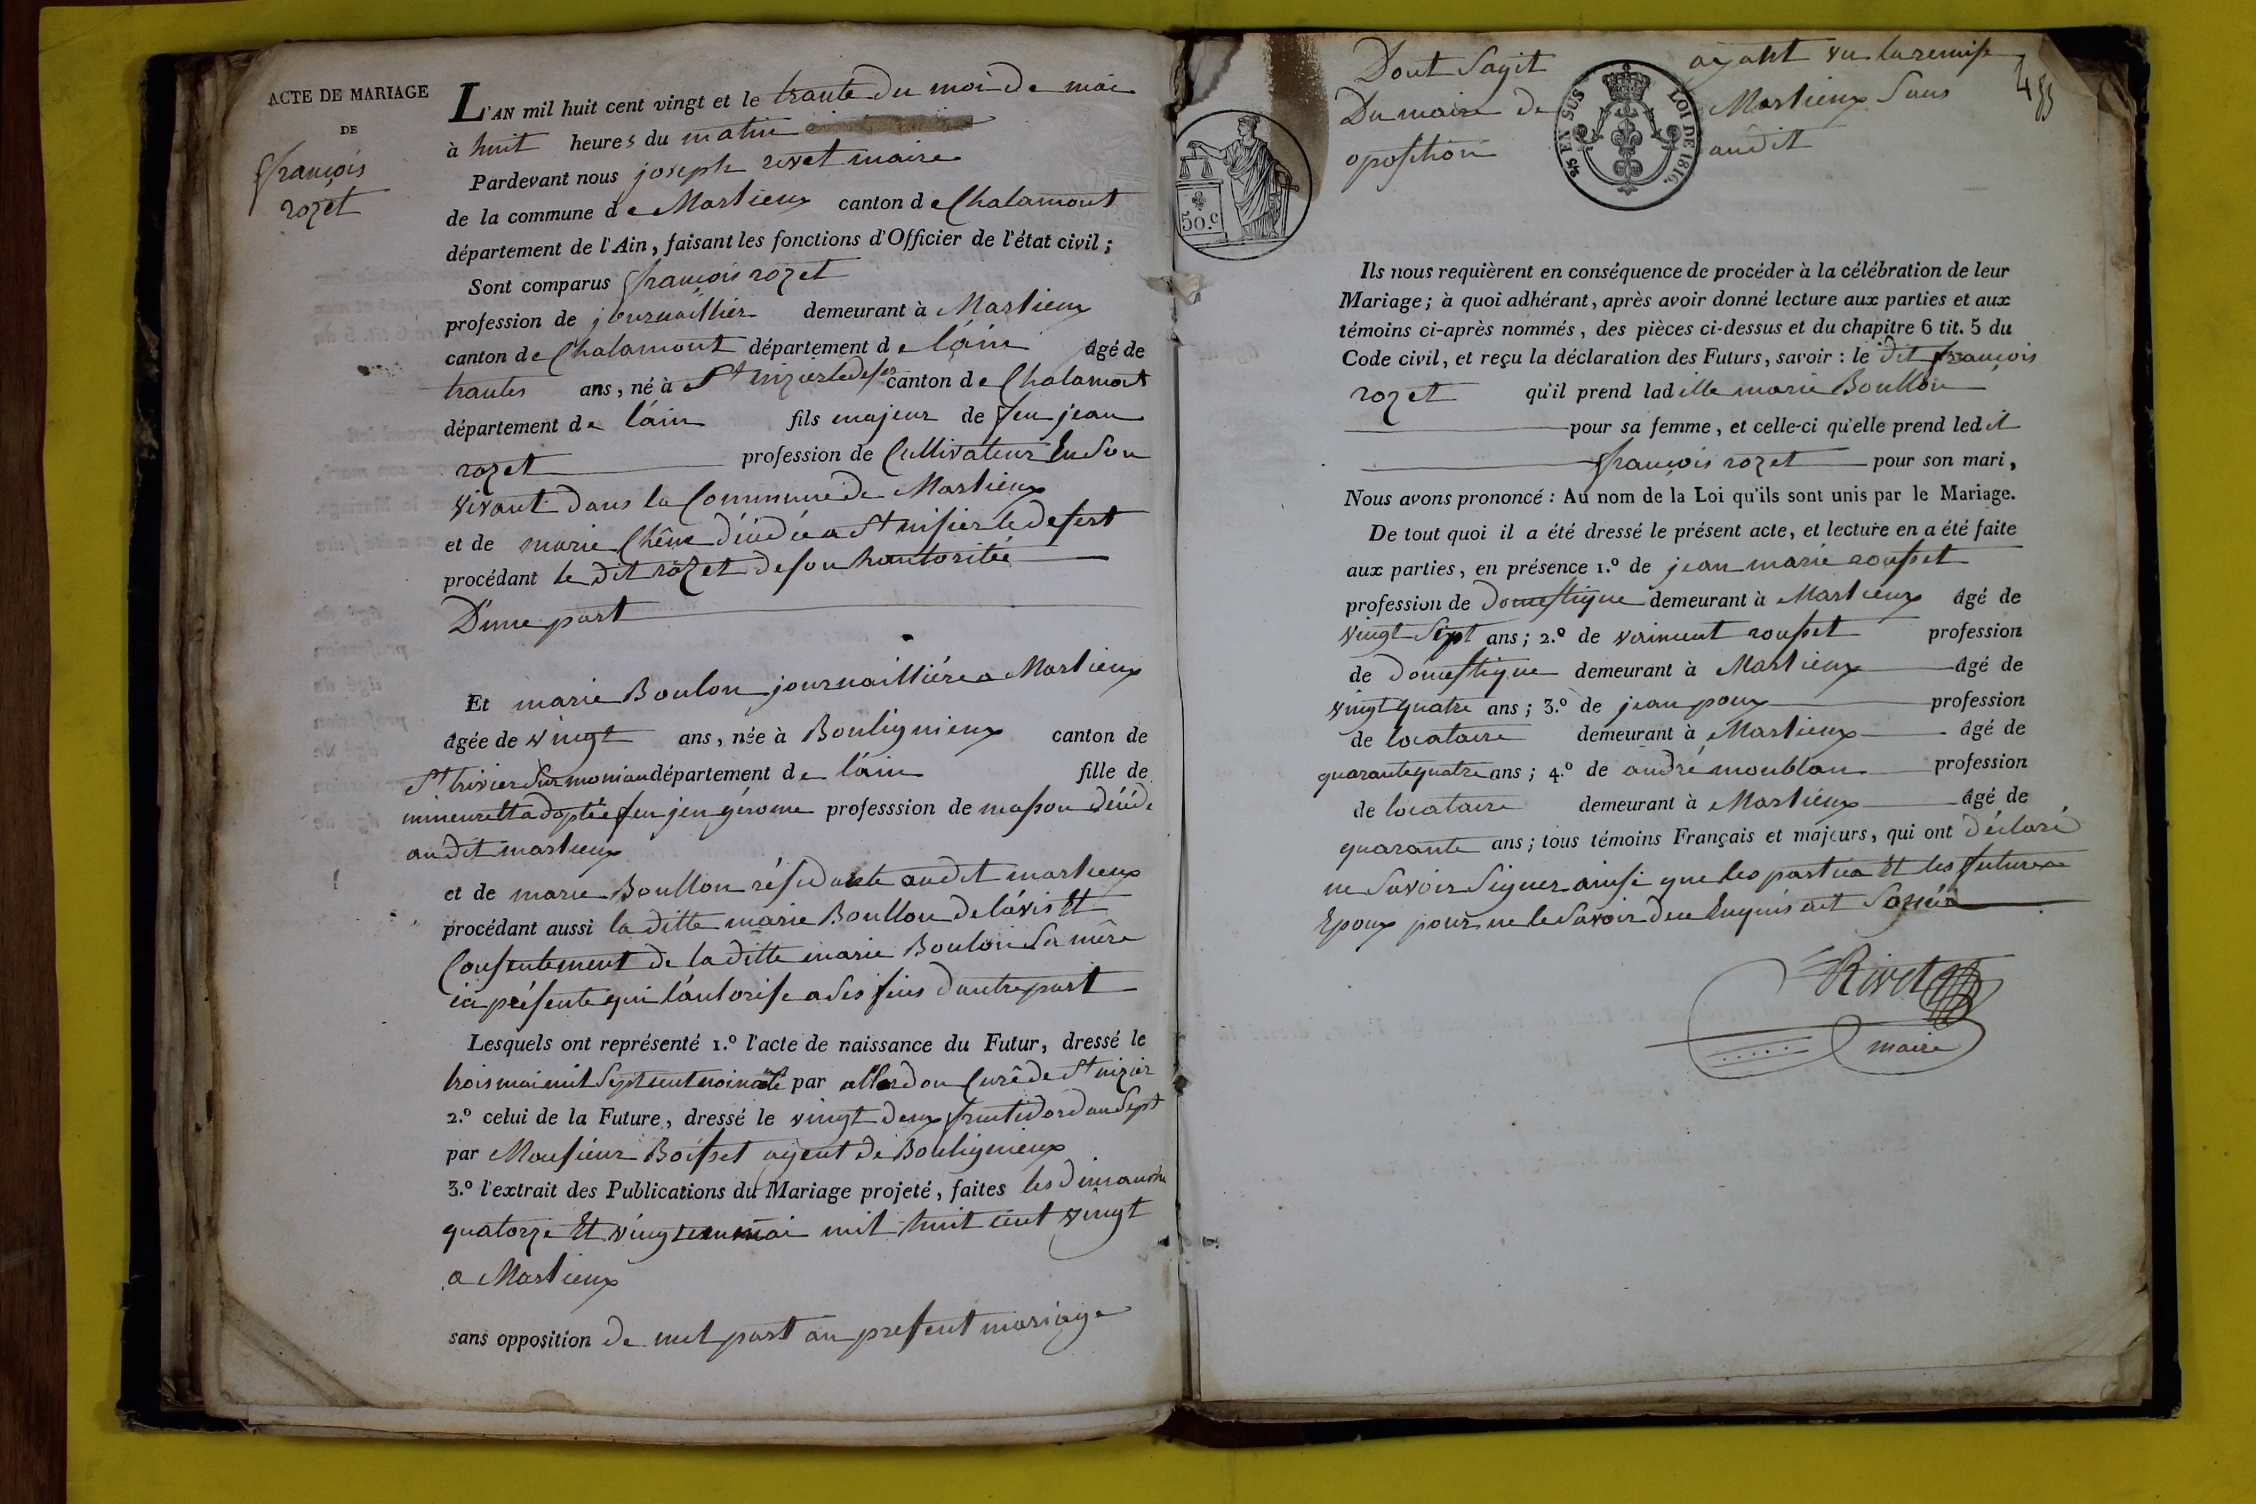 ACTE DE MARIAGE
DE
françois
rozet
L'AN mil huit cent vingt et le trante du moi de mai
à huit heures du matin
Pardevant nous joseph rivet maire
de la commune de Marlieux canton de Chalamont
département de l'Ain, faisant les fonctions d'Officier de l'état civil;
Sont comparus françois rozet
profession de journaillier demeurant à Marlieux
canton de Chalamont département de láin âgé de
trantes ans, né à St nizier le desert canton de Chalamont
département de láin fils majeur de feu jean
rozet profession de Cultivateur En Son
vivant dans la Commune de Marlieux
et de marie Chêne décédée a St nisier le desert
procédant le dit rozet de son hautoritée
D'une part
Et marie Boulon journaillière a Marlieux
âgée de vingt ans, née à Bouligneux canton de
St trivier Sur moniau département de láin fille de
mineure et adoptée feu jen gérome professsion de masson décédé
audit marlieux
et de marie Boullon résidante audit marlieux
procédant aussi la ditte marie Boullon de lávis Et
Consentement de la ditte marie Boulon Sa mêre
ici présente qui láutorise a Ses fins dautre part
Lesquels ont représenté 1.º l'acte de naissance du Futur, dressé le
trois mai mil Sept cent par Curê de St nizier
2.º celui de la Future, dressé le vingt deux fructidor dan Sept
par Monsieur Boisset agent de Bouligneux
3.º l'extrait des Publications du Mariage projeté, faites les dimanche
quatorze Et vingt un mai mil huit cent vingt
a Marlieux
sans opposition de nul part au present mariage
Dont Sagit ayant vu la remise
Du maire de Marlieux Sans
oposition audit
485
50.c
5/5 EN SUS
LOI DE 1816.
Ils nous requièrent en conséquence de procéder à la célébration de leur
Mariage; à quoi adhérant, après avoir donné lecture aux parties et aux
témoins ci-après nommés, des pièces ci-dessus et du chapitre 6 tit. 5 du
Code civil, et reçu la déclaration des Futurs, savoir: le dit françois
rozet qu'il prend ladille marie Boullon
pour sa femme, et celle-ci qu'elle prend ledit
françois rozet pour son mari,
Nous avons prononcé: Au nom de la Loi qu'ils sont unis par le Mariage.
De tout quoi il a été dressé le présent acte, et lecture en a été faite
aux parties, en présence 1.º de jean marie rousset
profession de domestique demeurant à Marlieux âgé de
vingt Sept ans; 2.º de rousset profession
de domestique demeurant à Marlieux âgé de
vingt quatre ans; 3.º de jean poux profession
de locataire demeurant à Marlieux âgé de
quarante quatre ans; 4.º de andré moublan profession
de locataire demeurant à Marlieux âgé de
quarante ans; tous témoins Français et majeurs, qui ont déclaré
ne Savoir Signer ainsi que les parties Et les futures
Epoux pour ne le Savoir de ce Enquis
Rivet
maire